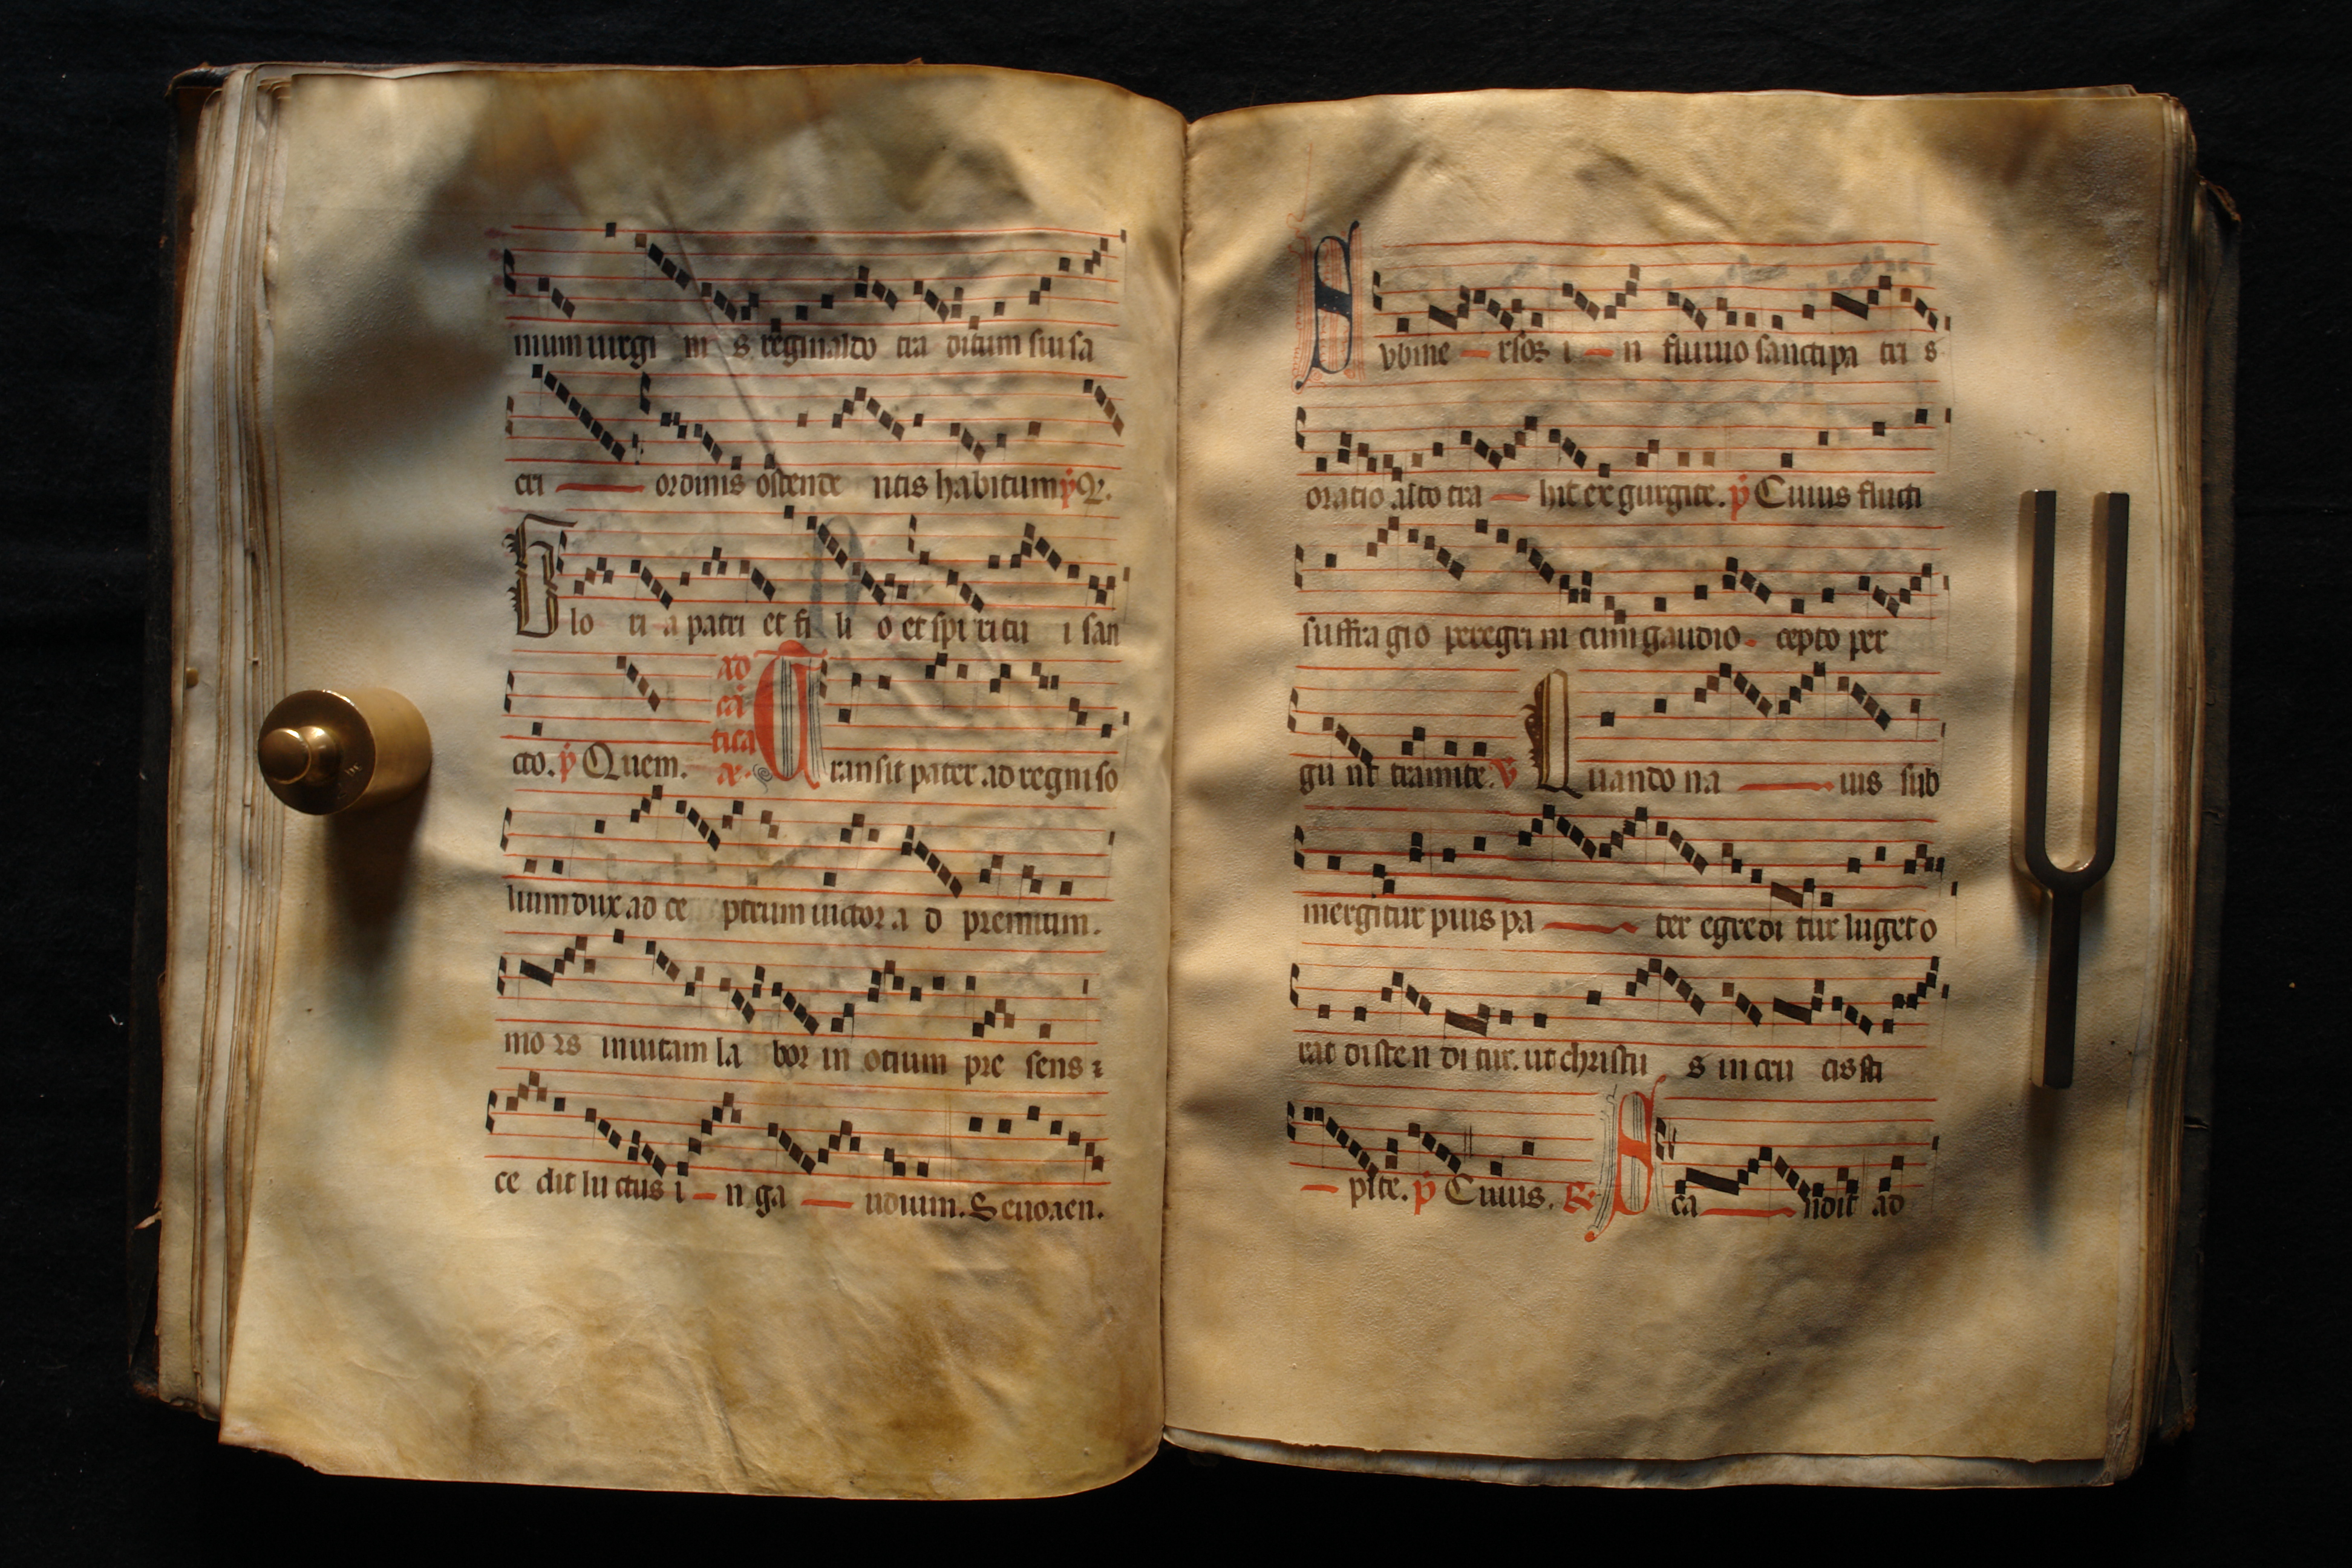 mum uirgi ni s reginaldo tra ditum sui sa
cri — ordinis ostende ntis habitum ℣ Q.
Glo ri a patri et fi li o et spi ritu i san
cto. ℣ Quem. ad cā tica a͞. Transit pater ad regni so
lium dux ad ce ptrum uictor a d premium.
mo rs in uitam la bor in otium pre sens ⁊
ce dit lu ctus i — n ga — udium. Seuouaen.
Svbme — rsos i — n fluuio sancti pa tri s
oratio alto tra — hit ex gurgite. ℣ Cuius flucti
suffra gio peregri ni cum gaudio cepto per
gu nt tramite. ℣ Quando na — uis sub
mergitur pius pa — ter egredi tur luget o
rat disten di tur. ut christu s in cru cis sti
— pite. ℣ Cuius. Asca — ndit ad